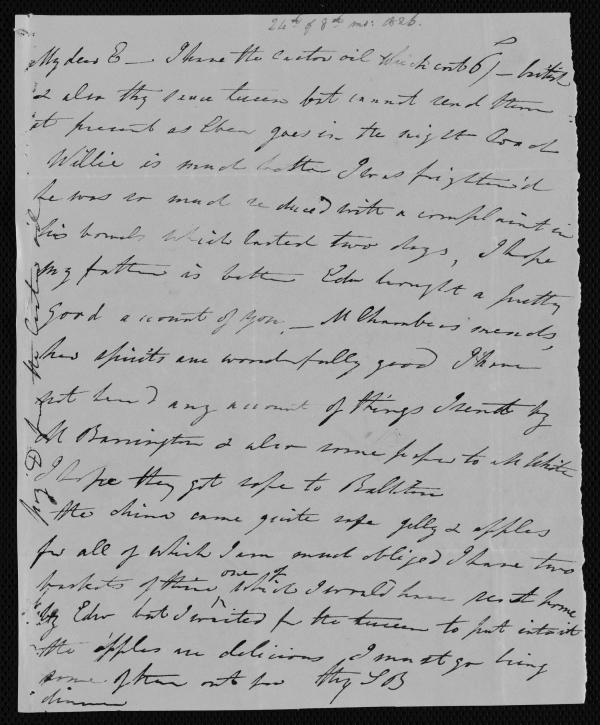 24th of 8th mo: 1826.
My dear E — I have the Castor oil which cost 6/– british
& also thy tureen but cannot send them
at present as Eben goes in the night Coach
Willie is much better I was frighten'd
he was so much reduced with a complaint in
his bowels which lasted two days, I hope
my father is better Edw brought a pretty
good account of you, — M Chambers mends,
her spirits are wonderfully good I have
not hear'd any account of things I sent by
M Barrington & also some paper to M White
I hope they got safe to Ballitore
the china came quite safe jelly & apples
for all of which I am much obliged I have two
baskets of thine one of which I would have sent home
by Edw but I waited for the tureen to put into it
the apples are delicious I must go bring
some of them out for thy S B
dinner
the Castor oil